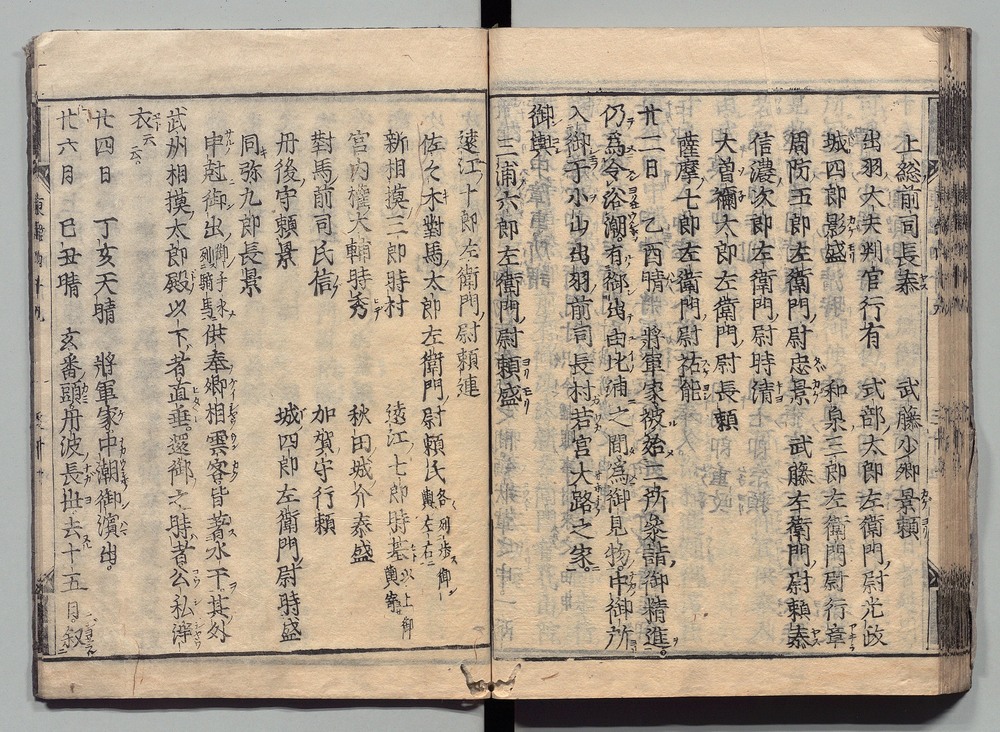 上総前司長泰　武藤少卿景頼
出羽大夫判官行有　式部太郎左衛門尉光政
城四郎影盛　和泉三郎左衛門尉行章
周防五郎左衛門尉忠景　武藤左衛門尉頼泰
信濃次郎左衛門尉時清
大曽禰太郎左衛門尉長頼
薩摩七郎左衛門尉祐能
廿二日　乙酉晴　將軍家被始二所衆詣御精進。
仍為令浴潮。有御出由比浦之間為御見物中御所
入御于小山出羽前司長村若宮大路之家。
御輿
三浦六郎左衛門尉頼盛
遠江十郎左衛門尉頼連
佐々木對馬太郎左衛門尉頼氏各列歩御輿左右
新相摸三郎時村　遠江七郎時基以上御輿寄
宮内權大輔時秀　秋田城介泰盛
對馬前司氏信　加賀守行頼
丹後守頼景　城四郎左衛門尉時盛
同弥九郎長景
申尅御出御手水列騎馬供奉卿相雲客皆著水干其外
武州相摸太郎殿以下者直垂。還御之時者公私淨
衣云云
廿四日　丁亥天晴　將軍家中潮御濱出。
廿六月　巳丑晴　玄番頭丹波長世去十五日叙